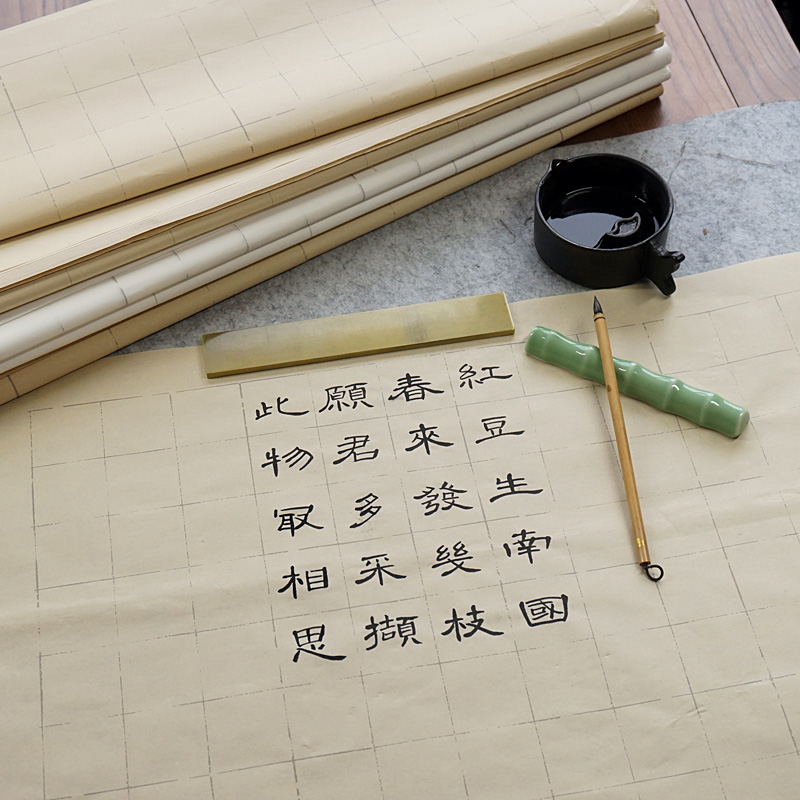 紅豆生南國
春來發幾枝
願君多采擷
此物冣相思